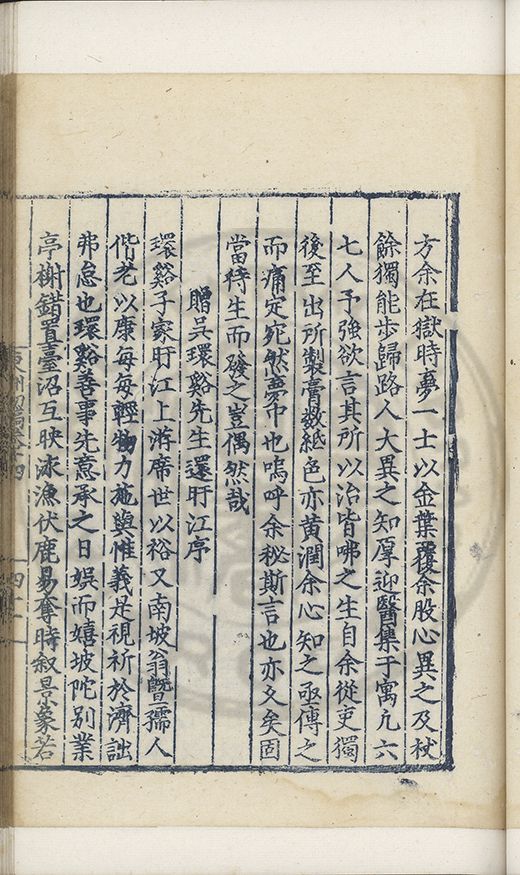 方余在獄時夢一士以金葉覆余股心異之及杖
餘獨能步歸路人大異之知厚迎醫集于寓凢六
七人予強欲言其所以治皆咈之生自余從吏獨
後至出所製膏數紙色亦黃潤余心知之亟傅之
而痛定宛然夢巾也嗚呼余秘斯言也亦久矣固
當待生而發之豈偶然哉
贈吳環谿先生還盱江序
環谿子家盱江上游席世以裕又南坡翁曁孺人
偕老以康每每輕物力施與惟義是視祈於濟詘
弗怠也環谿善事先意承之日娱而嬉坡陀别業
亭榭錯置臺沼互映泳漁伏鹿易奪時叙景象若